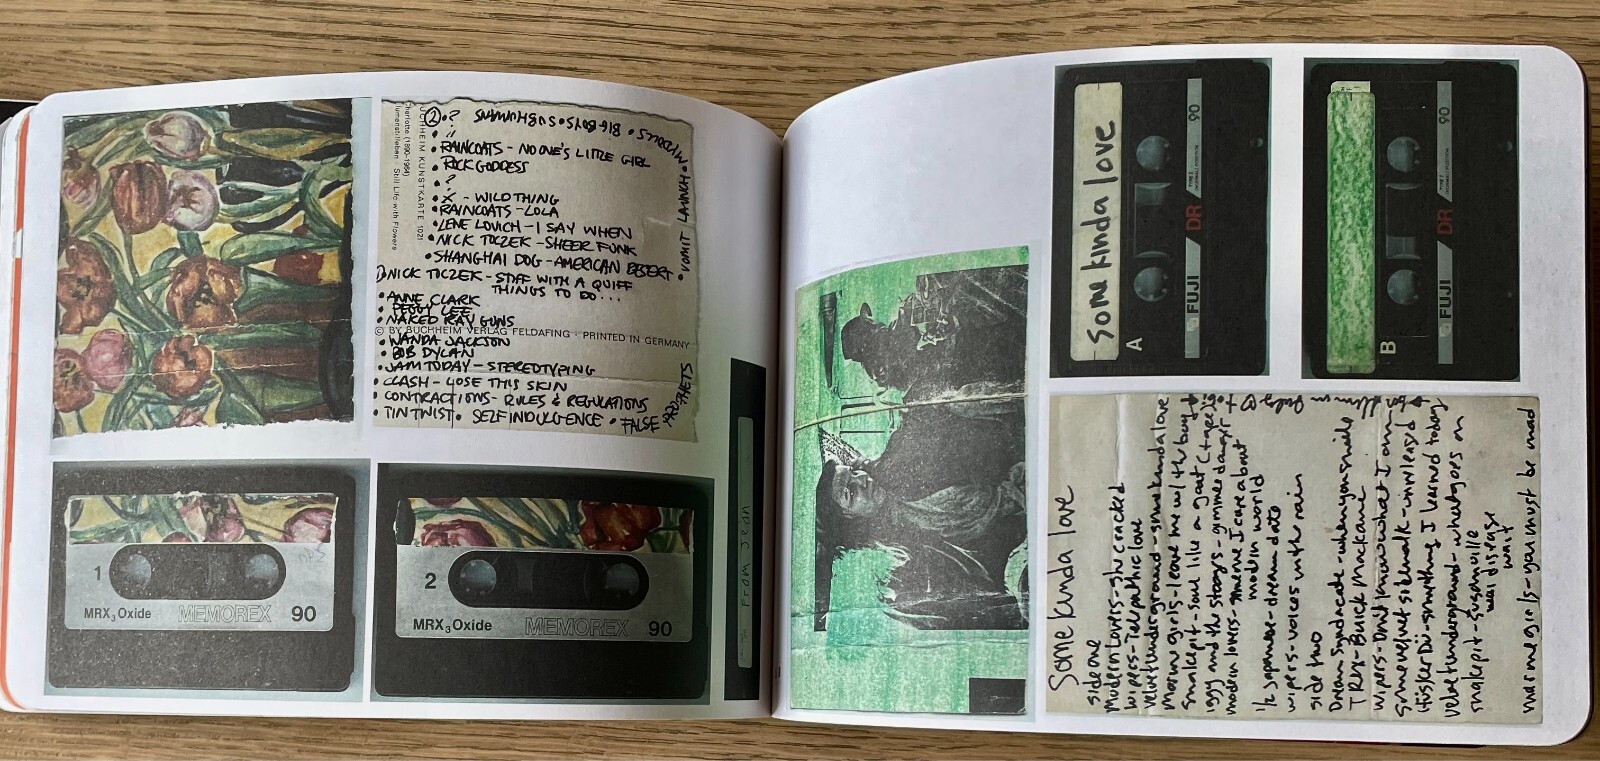 BUCHHEIM KUNSTKARTE 1021
Charlotte (1890-1964)
Blumenstilleben · Still Life with Flowers
② • ?
SUBHUMANS • BIG BOYS •
• RAINCOATS - NO ONE'S LITTLE GIRL
• ROCK GODDESS
• ?
• X - WILD THING
• RAINCOATS - LOLA
• LENE LOVICH - I SAY WHEN
• NICK TOCZEK - SHEER FUNK
• SHANGHAI DOG - AMERICAN DESERT
• VOMIT LAUNCH •
① NICK TOCZEK - STIFF WITH A QUIFF
THINGS TO DO...
• ANNE CLARK
• PEGGY LEE
• NAKED RAY GUNS
© BY BUCHHEIM VERLAG FELDAFING · PRINTED IN GERMANY
• WANDA JACKSON
• BOB DYLAN
• JAM TODAY - STEREOTYPING
• CLASH - LOSE THIS SKIN
• CONTRACTIONS - RULES & REGULATIONS
• TIN TWIST • SELF INDULGENCE • FALSE
PROPHETS
1
MRX3 Oxide
MEMOREX
90
2
MRX3 Oxide
MEMOREX
90
From Jean
Some kinda love
A
FUJI
DR
90
B
FUJI
DR
90
Some kinda love
side one
modern lovers - she cracked
wipers - telepathic love
velvet underground - some kinda love
marine girls - leave me w/ the boy
snakepit - soul like a goat
iggy and the stooges - gimme danger
modern lovers - someone I care about
modern world
1/2 Japanese - dream date
wipers - voices with rain
side two
Dream Syndicate - when you smile
T Rex - Buick Mackane
wipers - Don't know what I am
some velvet sidewalk
Hüsker Dü - something I learned today
velvet underground - what goes on
snakepit - susanville
wait
marine girls - you must be mad